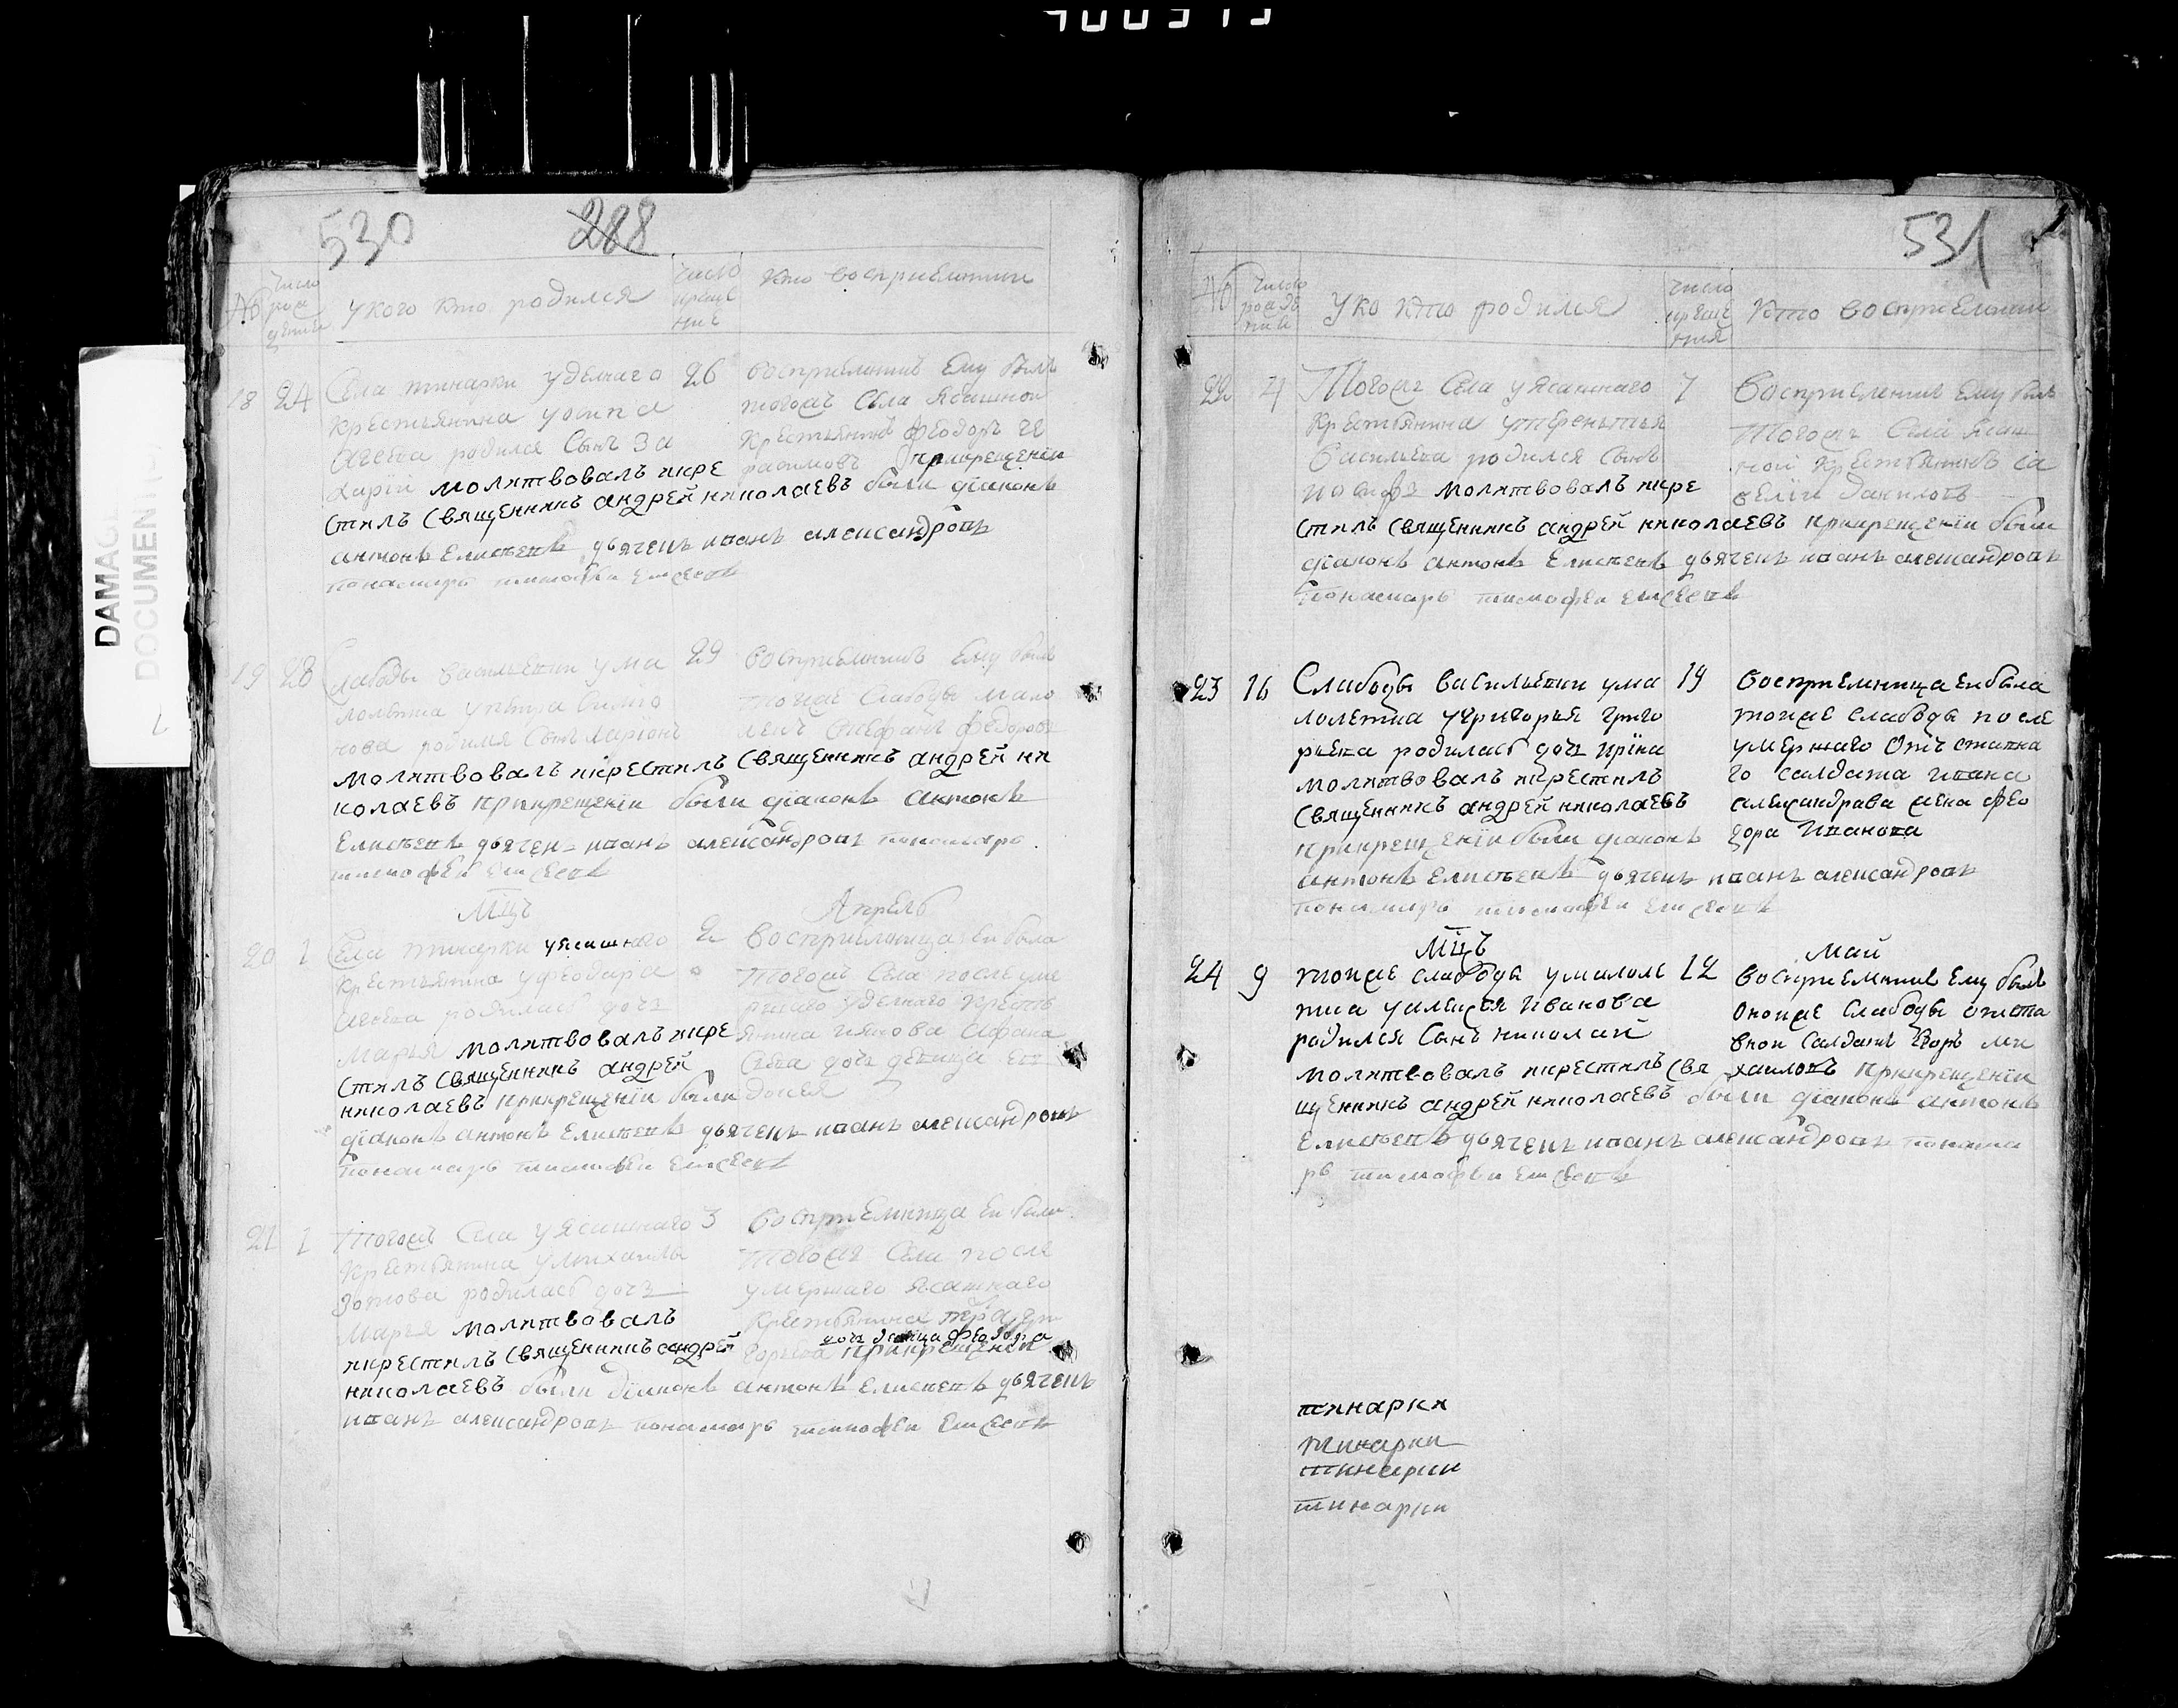 530 288
№ число рождения
у кого кто родился
число крщение
кто восприемники
18 24 Села тинарки удельнаго 26
крестьянина уосипа
родился Сынъ За
харiй молитвовалъ икре
стилъ Священникъ андрей николаевъ были дiаконъ
антонъ Елисѣевъ дьячекъ иванъ александровъ
понамарь тимофеи Елисеевъ
восприемникъ Ему былъ
тогожъ Села Ясашной
крестьянинъ феодоръ Ге
расимовъ прикрещенiи
19 28 Слабоды Васильевки ума 29
лолѣтка
нова родился Сынъ ларiонъ
молитвовалъ икрестилъ Священникъ андрей ни
колаевъ прикрещенiи были дiаконъ антонъ
Елисѣевъ дьячек иванъ александровъ понамарь
тимофеи Елисеевъ
восприемникъ Ему былъ
тоеже Слабоды мало
Стефанъ федоровъ
Мцъ Апрель
20 1 Села тинарки уясашнаго 2
крестьянина уфеодара
родилась дочь
Марья молитвовалъ икре
стилъ Священникъ андрей
николаевъ прикрещенiи были
дiаконъ антонъ Елисѣевъ дьячекъ иванъ александровъ
понамарь тимофеи Елисеевъ
восприемница Еи была
тогожъ Села после уме
ршаго удельнаго кресть
янина иякова Афана
сьева дочь девица Ев
докея
21 1 тогожъ Села уясашнаго 3
крестьянина умихаилы
Зотова родилась дочь
Марья молитвовалъ
икрестилъ Священникъ андрей
николаевъ были дiаконъ антонъ Елисѣевъ дьячекъ
иванъ александровъ понамарь тимофеи Елисеевъ
восприемница Еи была
тогожъ Села после
умершаго Ясашнаго
крестьянина
дочь девица феодора
прикрещенiи
531
№ число рождение
Уко кто родился
число крещения
кто восприемники
22 4 Тогожъ Села уясашнаго 7
крестьянина утереньтья
Васильева родился Сынъ
иосифъ молитвовалъ икре
стилъ Священникъ андрей николаевъ прикрещенiи были
дiаконъ антонъ Елисѣевъ дьячекъ иванъ александровъ
понамарь тимофеи Елисеевъ
Восприемникъ Ему былъ
Тогожъ Села Ясаш
ной крестьянинъ Са
велiи даниловъ
23 16 Слабоды васильевки ума 19
лолетка угригорья григо
рьева родилась дочь ирiна
молитвовалъ икрестилъ
Священникъ андрей николаевъ
прикрещенiи были дiаконъ
антонъ Елисѣевъ дьячекъ иванъ александровъ
понамарь тимофеи Елисеевъ
восприемница Еи была
тоеже слабоды после
умершаго отъставна
го салдата ивана
александрава жена фео
дора Иванова
Мцъ Май
24 9 тоеже слабоды умалоле 12
тка уалексея Иванова
родился Сынъ николай
молитвовалъ икрестилъ Свя
щенникъ андрей николаевъ были дiаконъ антонъ
Елисѣевъ дьячекъ иванъ александровъ понама
рь тимофеи Елисеевъ
восприемникъ Ему былъ
Оноиже Слабоды отста
вной Салдатъ Егоръ ми
хаиловъ прикрещенiи
тинарки
тинарки
тинарки
тинарки
DAMAGED
DOCUMENT